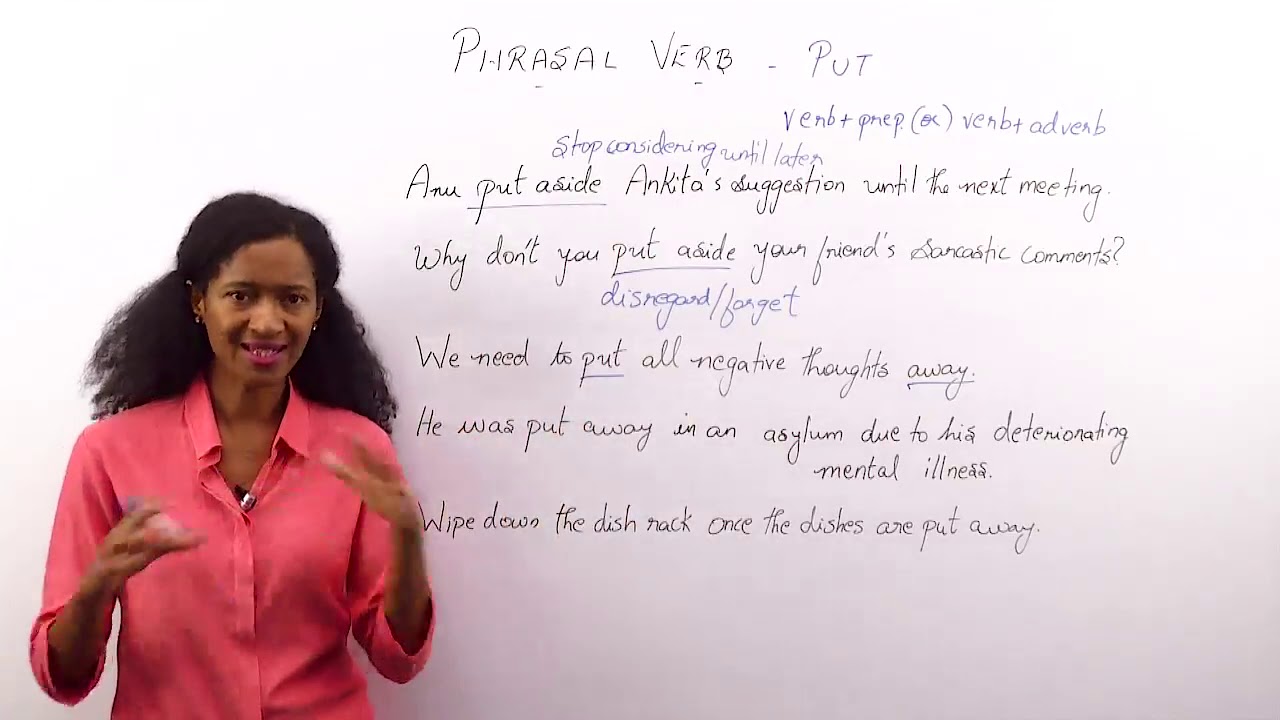 PHRASAL VERB - PUT
verb + prep. (or) verb + adverb
Stop considering until later
Anu put aside Ankita's suggestion until the next meeting.
Why don't you put aside your friend's sarcastic comments?
disregard/forget
We need to put all negative thoughts away.
He was put away in an asylum due to his deteriorating
mental illness.
Wipe down the dish rack once the dishes are put away.